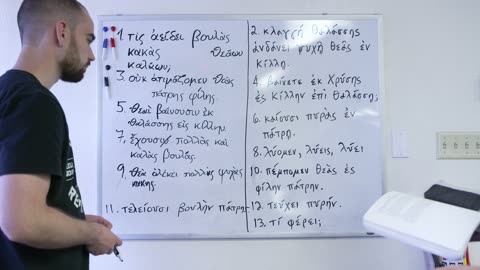 1. τίς ἀείδει βουλὰς
κακὰς θεάων
καλάων;
3. οὐκ ἀτιμάζομεν θεὰς
πάτρης φίλης
5. βαίνουσιν ἐκ
θαλάσσης εἰς κίλλην.
7. ἔχουσι πολλὰς καὶ
καλὰς βουλάς.
9. θεὰ ὀλέκει πολλὰς ψυχὰς
11. τελείουσι βουλὴν
2. κλαγγῇ θαλάσσης
ἁνδάνει ψυχῇ θεᾶς ἐν
κίλλῃ.
4. βαίνετε ἐκ Χρύσης
ἐς κίλλην ἐπὶ θαλάσσῃ;
6. καίουσι πυρὰς ἐν
πάτρῃ.
8. λύομεν, λύεις, λύει
10. πέμπομεν θεὰς ἐς
φίλην πάτρην.
12. τεύχει πυρήν.
13. τί φέρει;